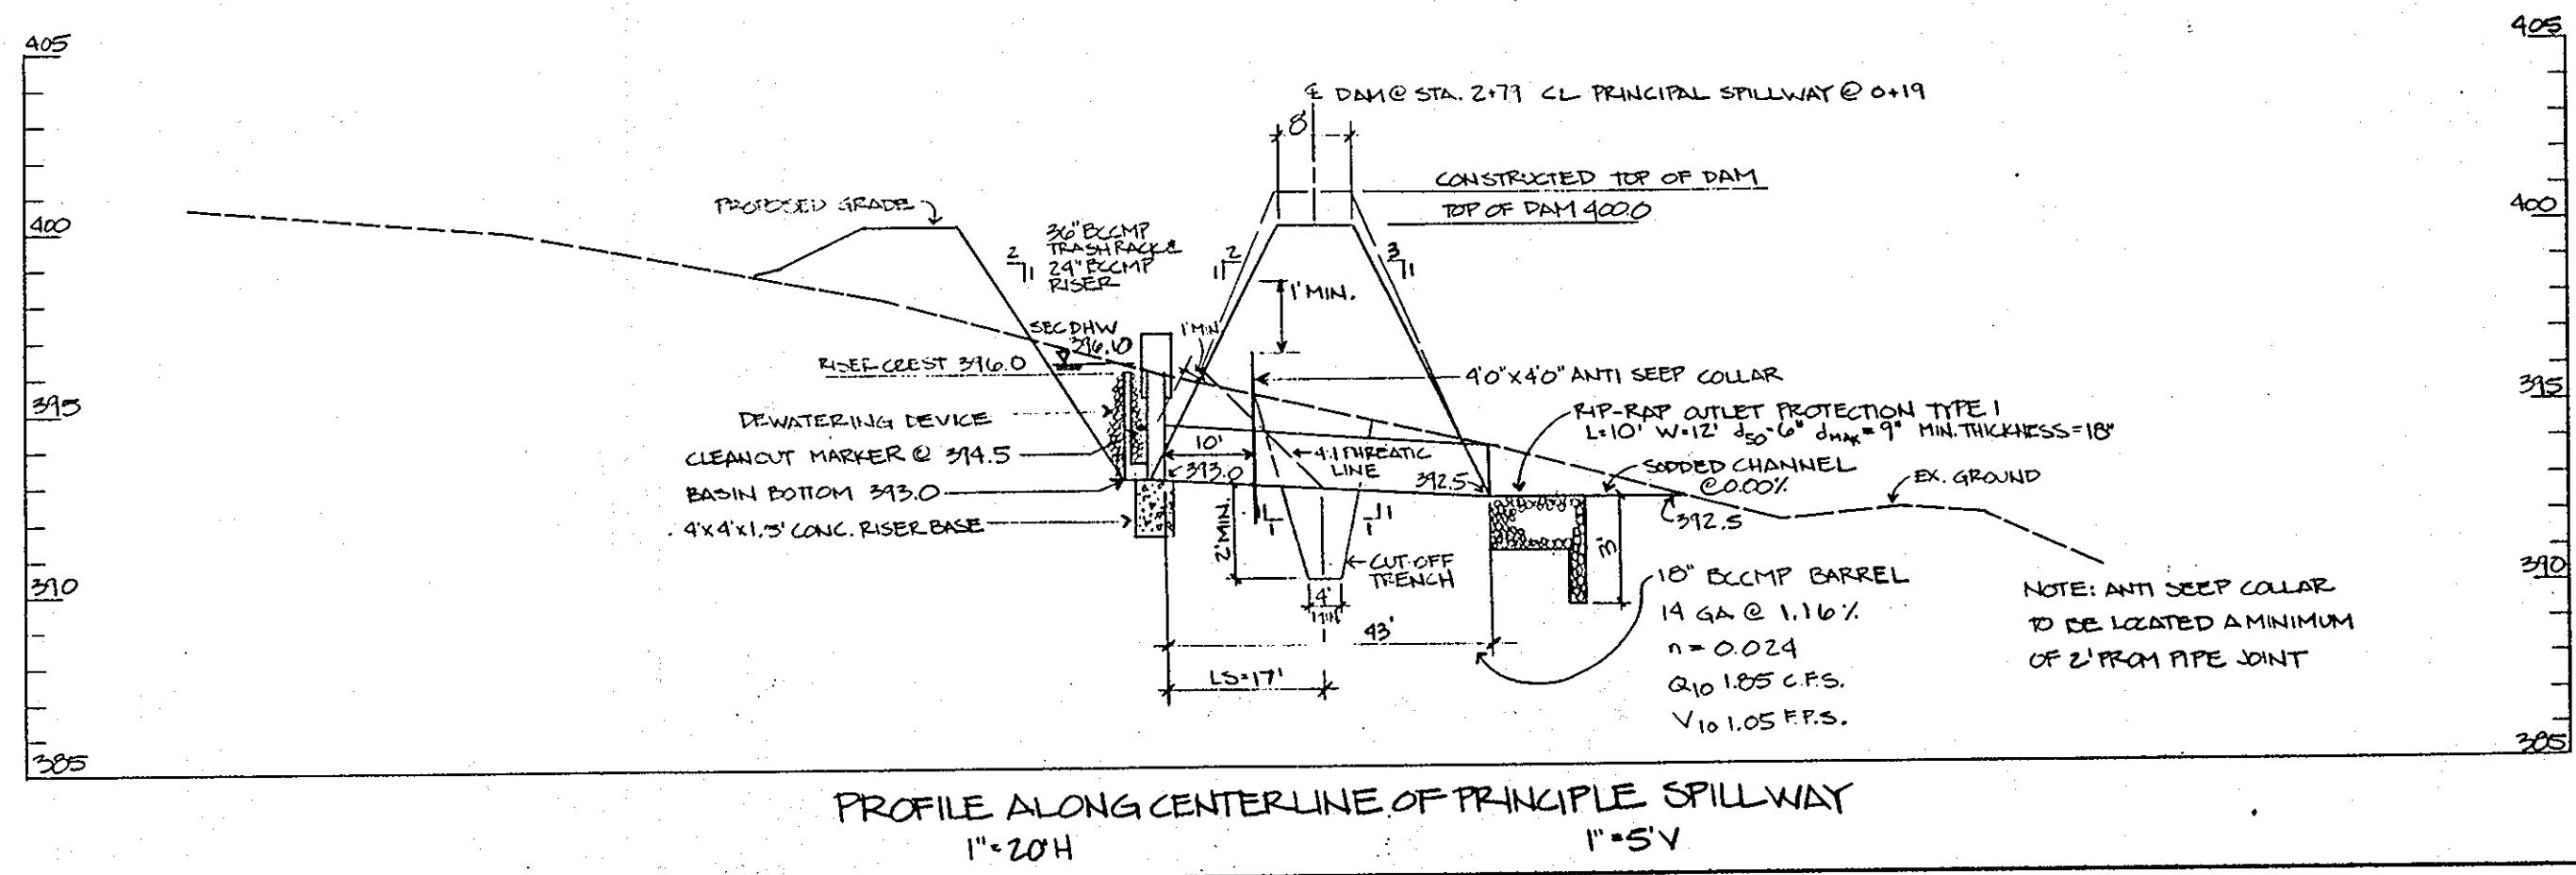 405
405
℄ DAM @ STA. 2+79 CL PRINCIPAL SPILLWAY @ 0+19
8'
CONSTRUCTED TOP OF DAM
TOP OF DAM 400.0
PROPOSED GRADE
400
400
36" BCCMP
TRASH RACK &
24" BCCMP
RISER
2
1
2
1
3
1
1' MIN.
SEC DHW
396.10
1' MIN
RISER CREST 396.0
4'0" X 4'0" ANTI SEEP COLLAR
395
395
DEWATERING DEVICE
RIP-RAP OUTLET PROTECTION TYPE 1
L=10' W=12' d50=6" dMAX=9" MIN. THICKNESS=18"
CLEANOUT MARKER @ 394.5
10'
393.0
4:1 PHREATIC
LINE
392.5
SODDED CHANNEL
@ 0.00%
EX. GROUND
BASIN BOTTOM 393.0
392.5
4'X4'X1.3' CONC. RISER BASE
2' MIN.
1
1
1
1
3'
CUT-OFF
TRENCH
390
390
4'
MIN
18" BCCMP BARREL
14 GA @ 1.16%
n = 0.024
Q10 1.85 C.F.S.
V10 1.05 F.P.S.
43'
LS=17'
NOTE: ANTI SEEP COLLAR
TO BE LOCATED A MINIMUM
OF 2' FROM PIPE JOINT
385
385
PROFILE ALONG CENTERLINE OF PRINCIPLE SPILLWAY
1"=20'H
1"=5'V